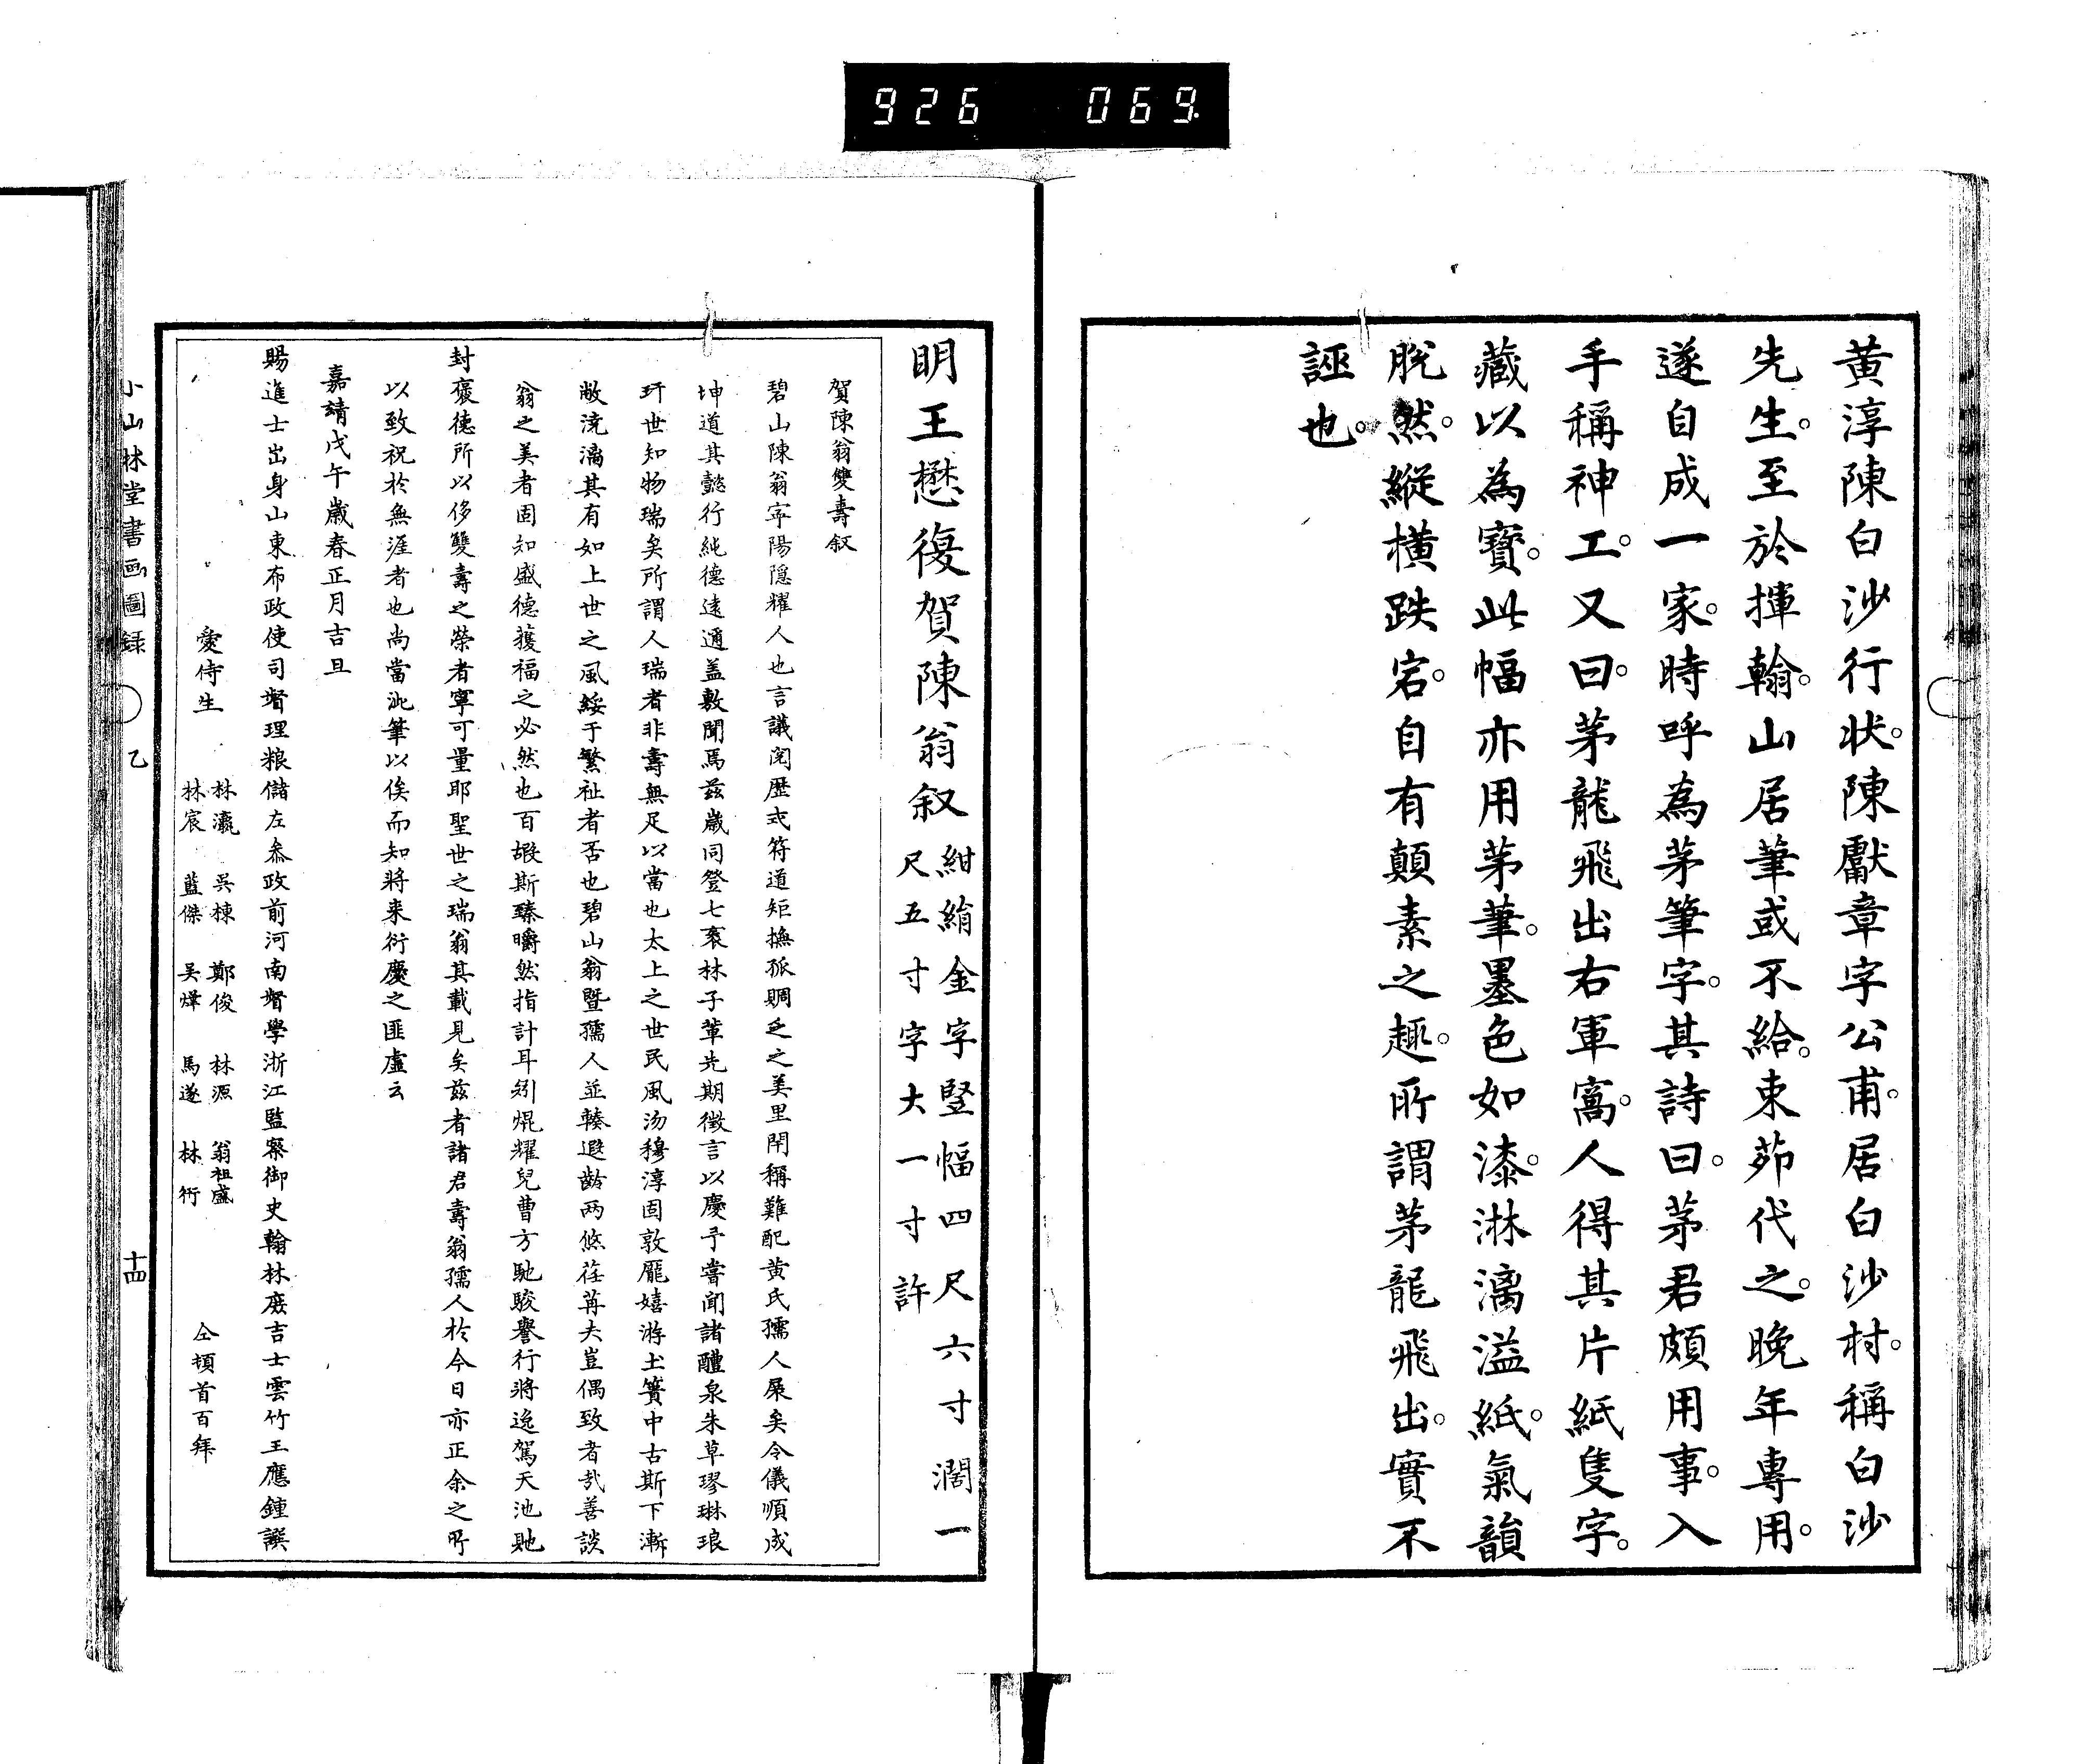 926 069.
黄淳陳白沙行状。陳獻章字公甫。居白沙村。稱白沙
先生。至於揮翰。山居筆或不給。束茆代之。晩年專用。
遂自成一家。時呼為茅筆字。其詩曰。茅君頗用事。入
手稱神工。又曰。茅龍飛出右軍窩。人得其片紙隻字。
藏以為寶。此幅亦用茅筆。墨色如漆。淋漓溢紙。氣韻
脱然。縱横跌宕。自有顛素之趣。所謂茅龍飛出。實不
誣也。
明王懋復賀陳翁叙
紺絹金字竪幅四尺六寸濶一
尺五寸字大一寸許
賀陳翁雙壽叙
碧山陳翁寧陽隠耀人也言議閱歴式符道矩撫孤賙乏之美里閈稱難配黄氏孺人展矣令儀順成
坤道其懿行純德遠邇盖敷聞焉兹歳同登七袠林子軰先期徵言以慶予嘗聞諸醴泉朱草璆琳琅
玕世知物瑞矣所謂人瑞者非壽無足以當也太上之世民風沕穆淳固敦厖嬉游土簣中古斯下漸
敝澆漓其有如上世之風綏于繁祉者否也碧山翁暨孺人並轃遐齡两悠荏苒夫豈偶致者㢤善談
翁之美者固知盛德䕶福之必然也百嘏斯臻皭然指計耳矧焜耀兒曹方馳駿譽行將逸駕天池貤
封褒德所以侈雙壽之榮者寧可量耶聖世之瑞翁其載見矣兹者諸君壽翁孺人於今日亦正余之所
以致祝於無涯者也尚當泚筆以俟而知將来衍慶之匪虚云
嘉靖戊午歳春正月吉旦
賜進士出身山東布政使司督理粮儲左叅政前河南督學浙江監察御史翰林庶吉士雲竹王應鍾譔
愛侍生
林瀛 吳棟 鄭俊 林源 翁祖盛
林宸 藍傑 吴煒 馬遂 林衍
仝頓首百拜
小山林堂書画圖録 乙 十四